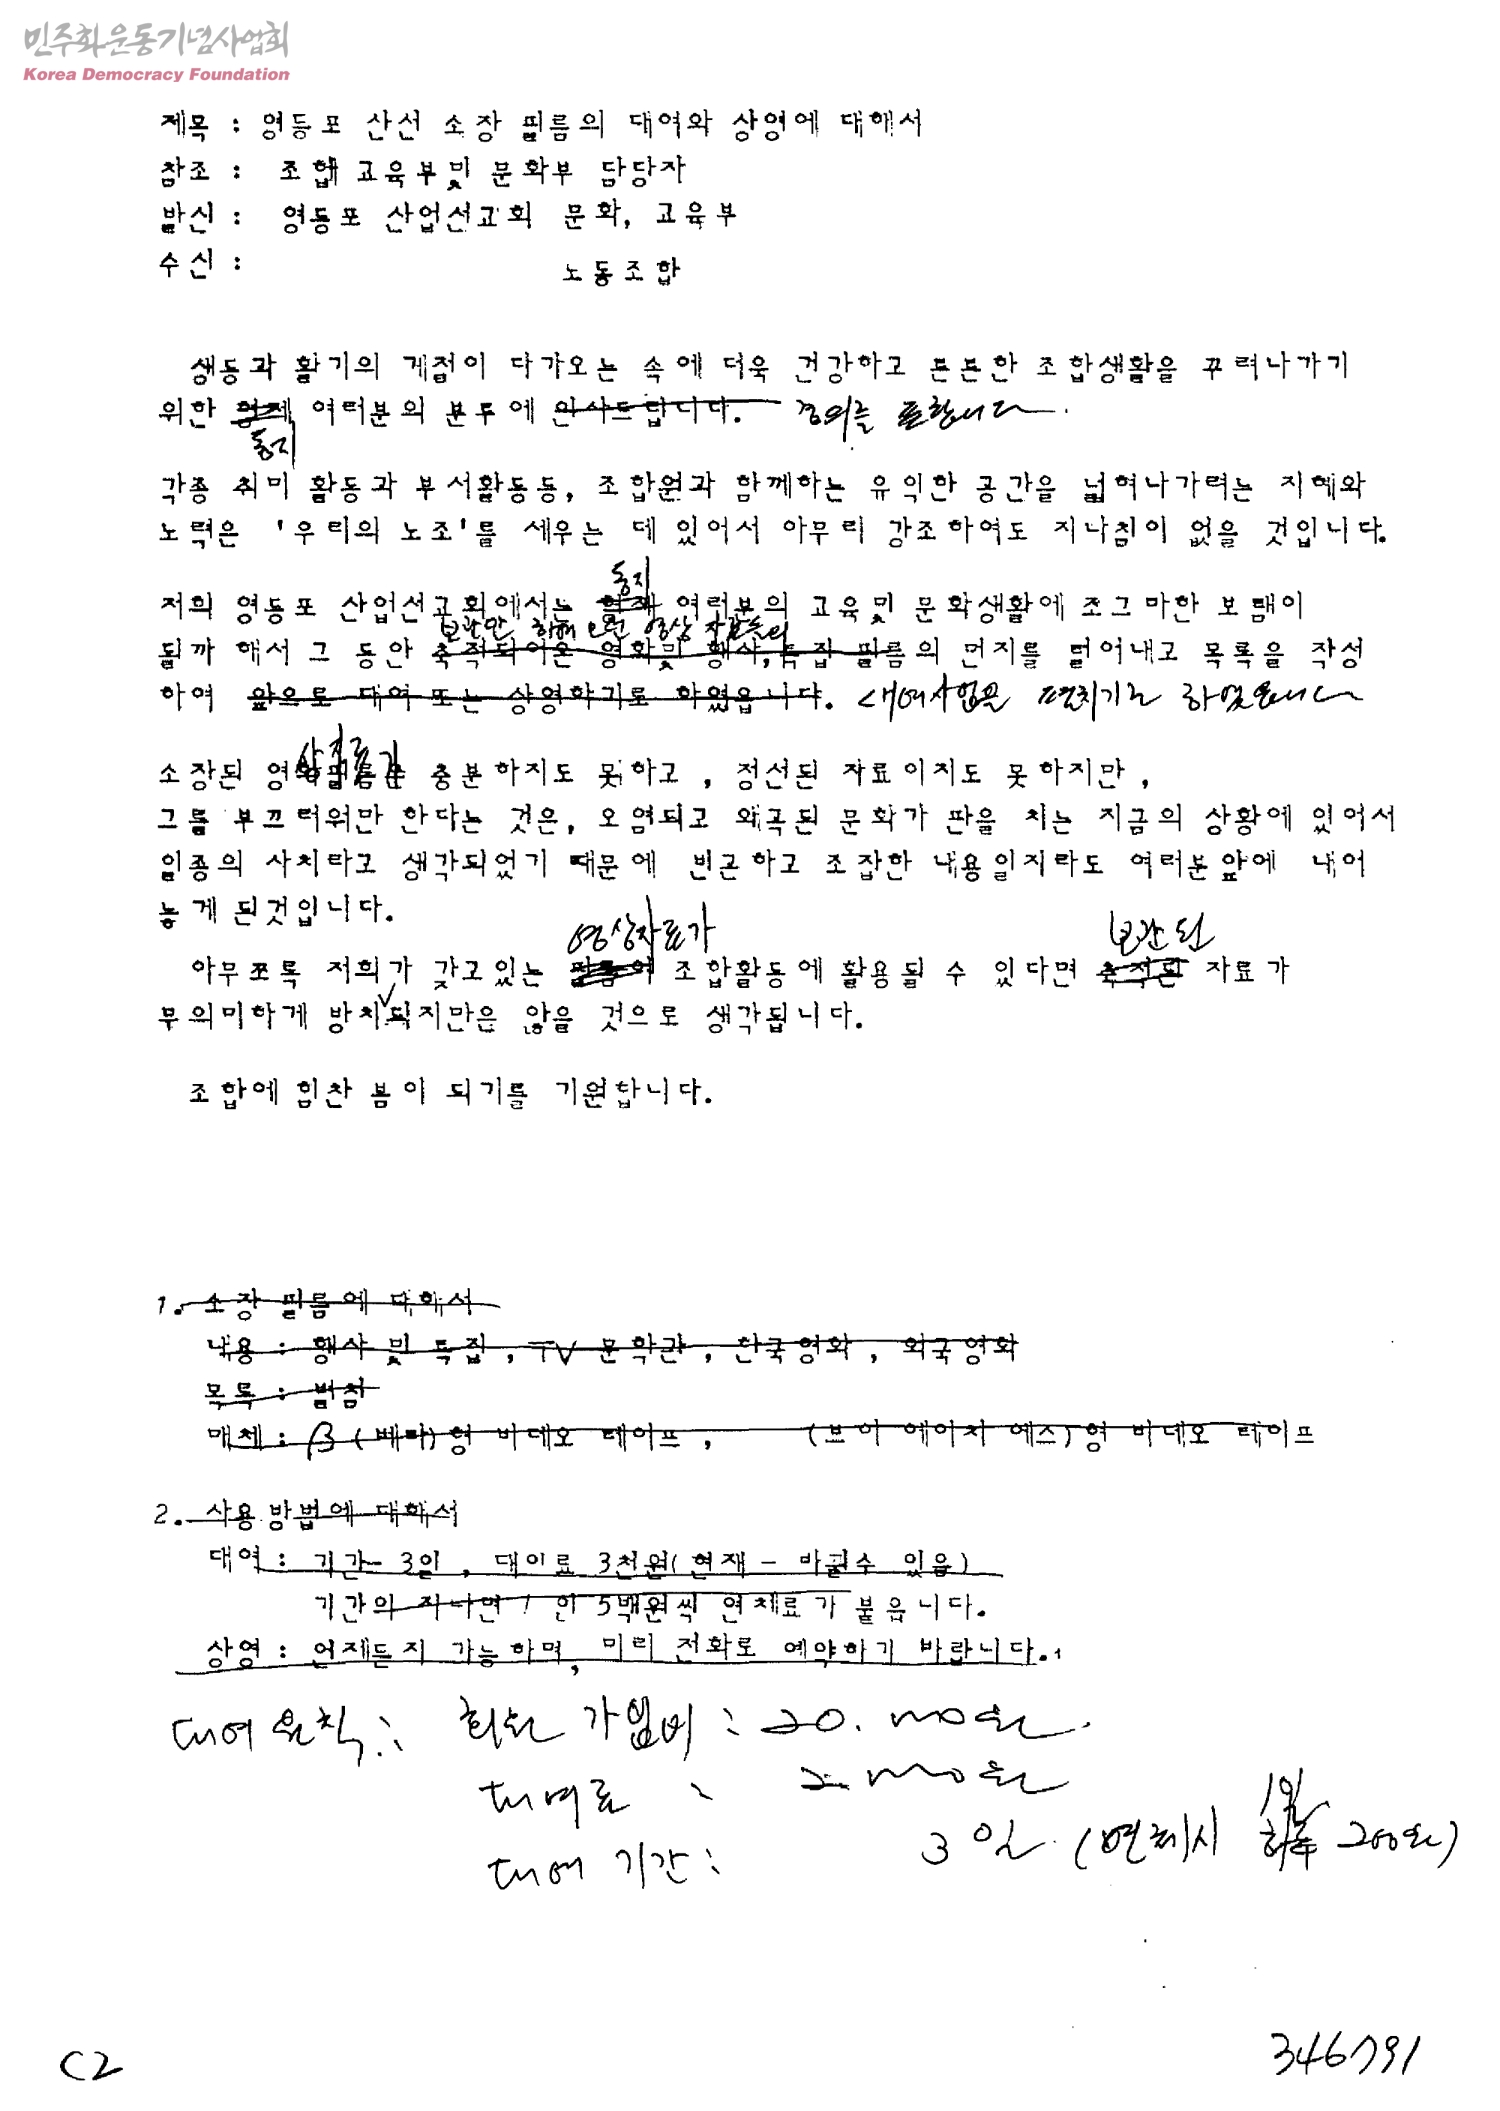 민주화운동기념사업회
Korea Democracy Foundation
제목 : 영등포 산선 소장 필름의 대여와 상영에 대해서
참조 : 조합 교육부및 문화부 담당자
발신 : 영등포 산업선교회 문화, 교육부
수신 : 노동조합
생동과 활기의 계절이 다가오는 속에 더욱 건강하고 튼튼한 조합생활을 꾸려나가기
위한 형제 여러분의 분투에 인사드립니다. 경의를 표합니다.
동지
각종 취미 활동과 부서활동등, 조합원과 함께하는 유익한 공간을 넓혀나가려는 지혜와
노력은 '우리의 노조'를 세우는 데 있어서 아무리 강조하여도 지나침이 없을 것입니다.
동지
저희 영등포 산업선교회에서는 형제 여러분의 교육및 문화생활에 조그마한 보탬이
보관만 해 오던 영상 자료들의
될까 해서 그 동안 축적되어온 영화및 행사, 특집 필름의 먼지를 털어내고 목록을 작성
하여 앞으로 대여 또는 상영하기로 하였읍니다. 대여사업을 펼치기로 하였읍니다
상자료가
소장된 영화필름은 충분하지도 못하고 , 정선된 자료이지도 못하지만 ,
그를 부끄러워만 한다는 것은, 오염되고 왜곡된 문화가 판을 치는 지금의 상황에 있어서
일종의 사치라고 생각되었기 때문에 빈곤하고 조잡한 내용일지라도 여러분앞에 내어
놓게 된것입니다.
영상자료가 보관된
아무쪼록 저희가 갖고있는 필름이 조합활동에 활용될 수 있다면 축적된 자료가
무의미하게 방치되지만은 않을 것으로 생각됩니다.
조합에 힘찬 봄이 되기를 기원합니다.
1. 소장 필름에 대해서
내용 : 행사 및 특집 , TV 문학관 , 한국영화 , 외국영화
목록 : 별첨
매체 : β (베타)형 비데오 테이프 , (브이 에이치 에스)형 비데오 테이프
2. 사용방법에 대해서
대여 : 기간- 3일 , 대이료 3천원( 현재 - 바뀔수 있음)
기간의 지나면 1 인 5백원씩 연체료가 붙읍니다.
상영 : 언제든지 가능하며, 미리 전화로 예약하기 바랍니다.
대여원칙 : 회원 가입비 : 20.000원.
대여료 : 2000원
1일
대여 기간 : 3일 (연체시 하루 200원)
C2
346791